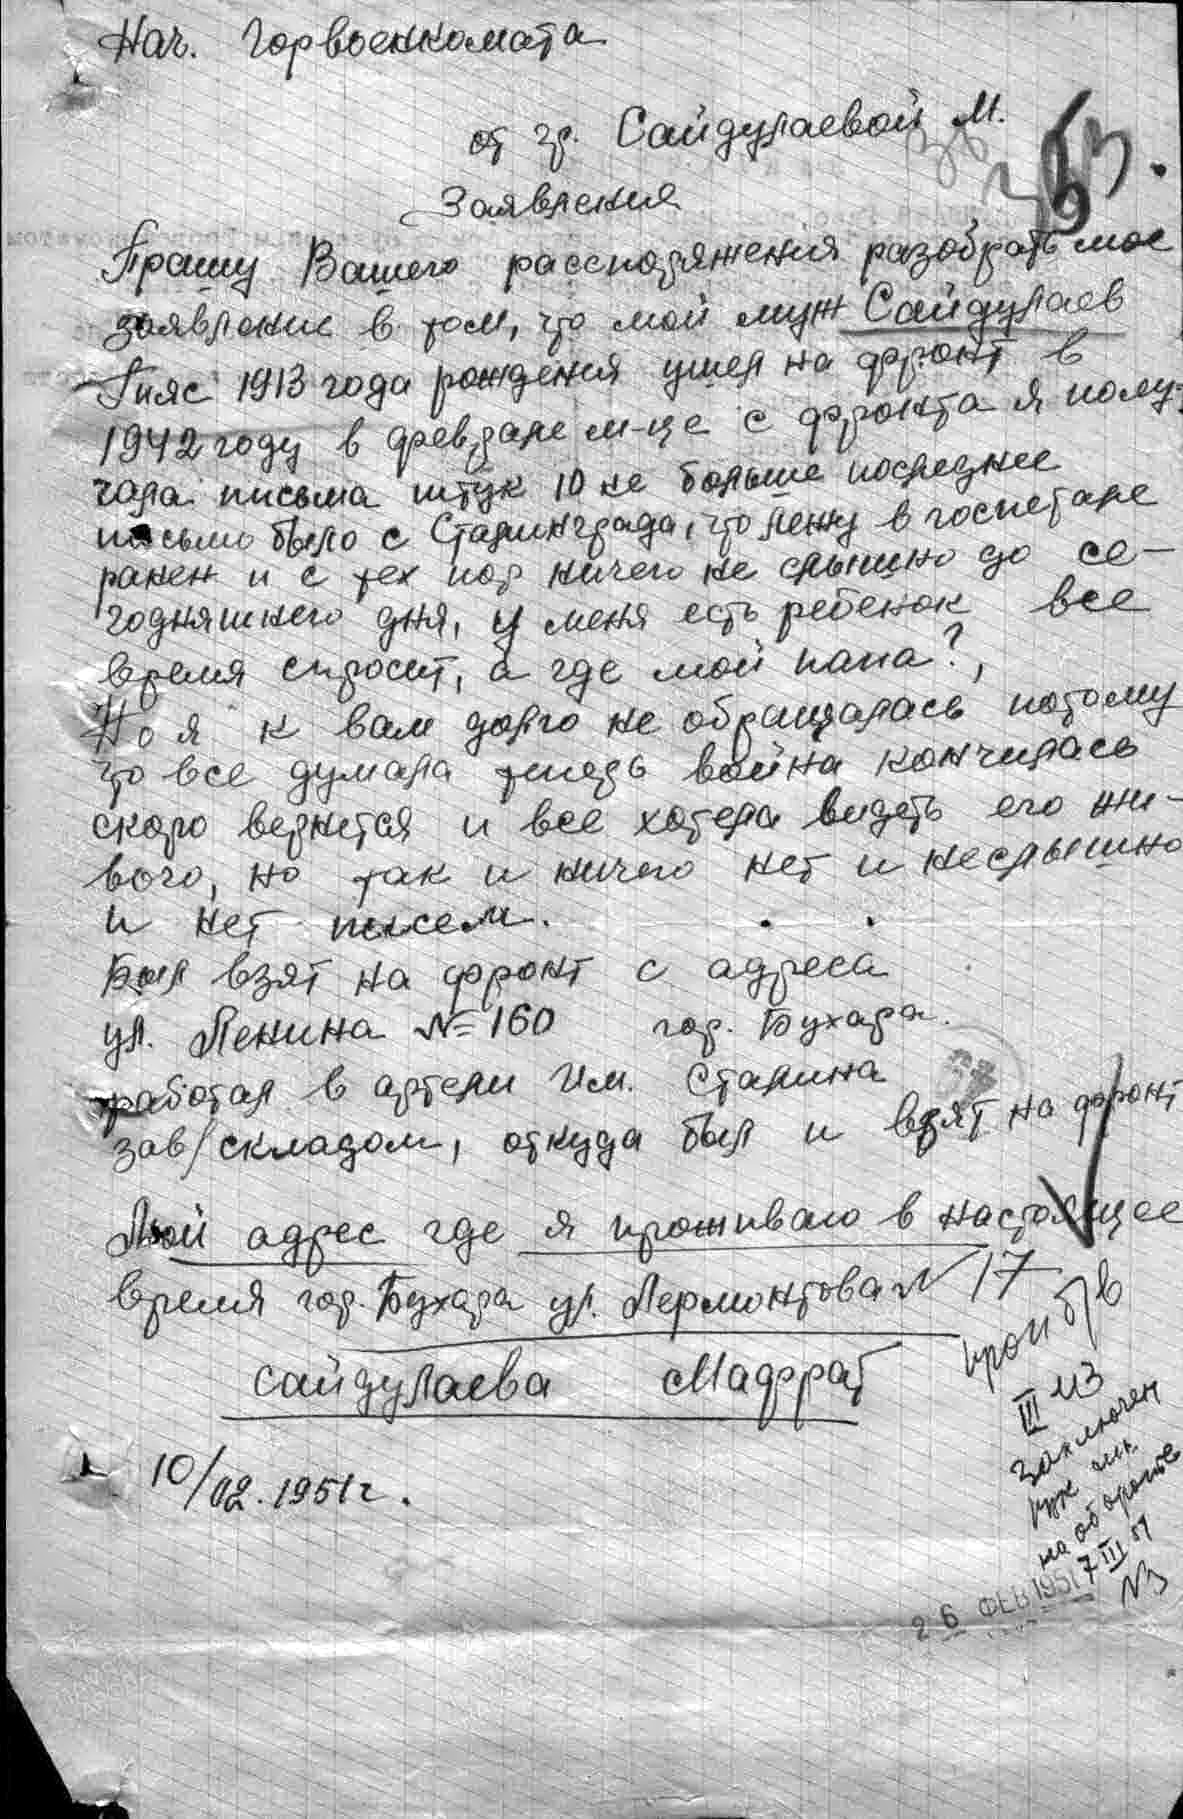 Нач. Горвоенкомата
от гр. Сайдулаевой М.
Заявления
Прошу Вашего расспоряжения разобрать мое
заявление в том, что мой муж Сайдулаев
Гияс 1913 года рождения ушел на фронт в
1942 году в феврале м-це с фронта я полу-
чала письма штук 10 не больше последнее
письмо было с Сталинграда, что лежу в госпетале
ранен и с тех пор ничего не слышно до се-
годняшнего дня, у меня есть ребенок все
время спросит, а где мой папа?,
Но я к вам долго не обращалась потому
что все думала теперь война кончилась
скоро вернется и все хотела видеть его жи-
вого, но так и ничего нет и неслышно
и нет писем.
Был взят на фронт с адреса
ул. Ленина №160 гор. Бухара.
работал в артели им. Сталина
зав/складом, откуда был и взят на фронт
Мой адрес где я проживаю в настоящее
время гор. Бухара ул. Лермонтова N 17
сайдулаева Мафрат
10/02.1951г.
проп б/в
III из
заключен
на обороте
7 III 51
26 ФЕВ 1951